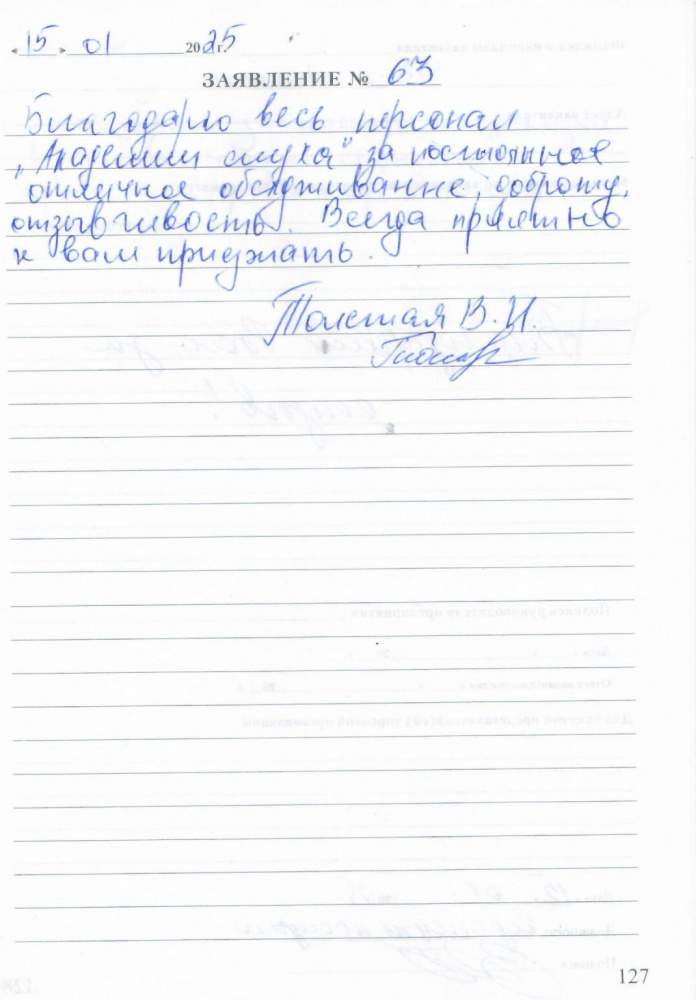 « 15 » 01 2025 г.
ЗАЯВЛЕНИЕ № 63
Благодарю весь персонал
„Академии слуха" за постоянное
отличное обслуживание, доброту,
отзывчивость. Всегда приятно
к вам приезжать.
Толстая В. И.
127